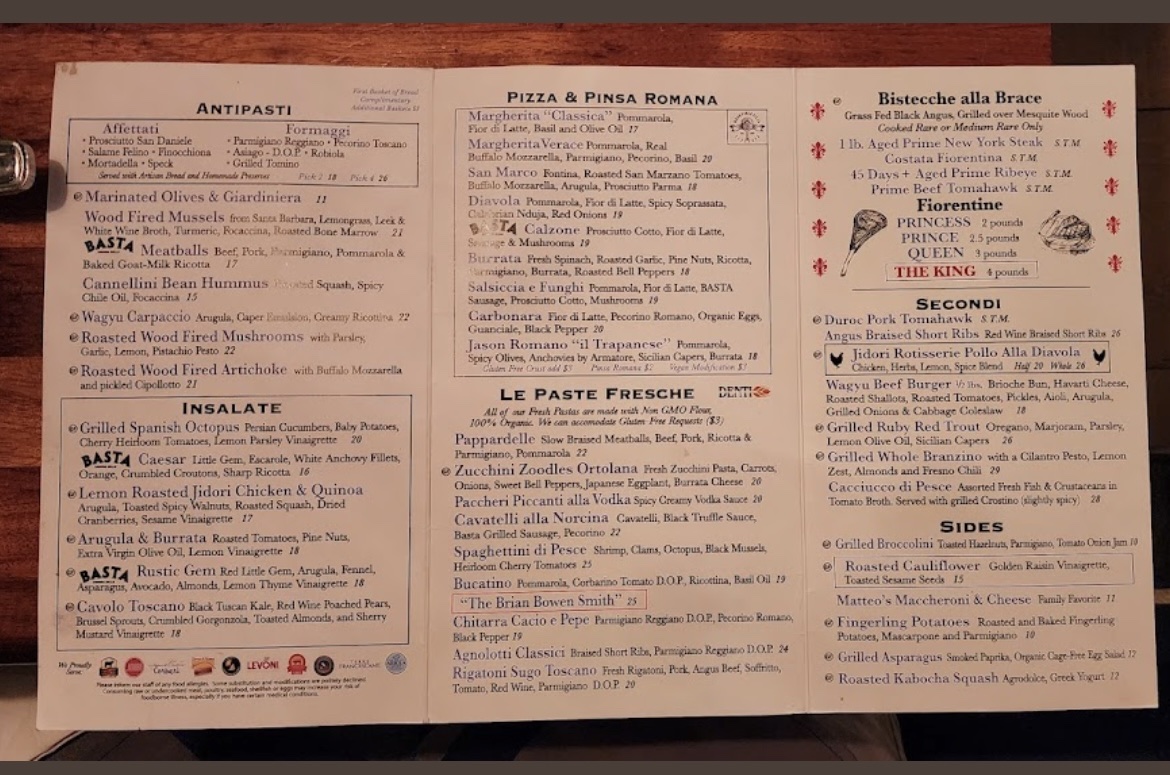 First Basket of Bread
Complementary
Additional Baskets $2
ANTIPASTI
Affettati
• Prosciutto San Daniele
• Salame Felino • Finocchiona
• Mortadella • Speck
Formaggi
• Parmigiano Reggiano • Pecorino Toscano
• Asiago - D.O.P • Robiola
• Grilled Tomino
Served with Artisan Bread and Homemade Preserves Pick 2 18 Pick 4 26
Marinated Olives & Giardiniera 11
Wood Fired Mussels from Santa Barbara, Lemongrass, Leek &
White Wine Broth, Turmeric, Focaccina, Roasted Bone Marrow 21
BASTA Meatballs Beef, Pork, Parmigiano, Pommarola &
Baked Goat-Milk Ricotta 17
Cannellini Bean Hummus Squash, Spicy
Chile Oil, Focaccina 15
Wagyu Carpaccio Arugula, Caper Emulsion, Creamy Ricottina 22
Roasted Wood Fired Mushrooms with Parsley,
Garlic, Lemon, Pistachio Pesto 22
Roasted Wood Fired Artichoke with Buffalo Mozzarella
and pickled Cipollotto 21
INSALATE
Grilled Spanish Octopus Persian Cucumbers, Baby Potatoes,
Cherry Heirloom Tomatoes, Lemon Parsley Vinaigrette 20
BASTA Caesar Little Gem, Escarole, White Anchovy Fillets,
Orange, Crumbled Croutons, Sharp Ricotta 16
Lemon Roasted Jidori Chicken & Quinoa
Arugula, Toasted Spicy Walnuts, Roasted Squash, Dried
Cranberries, Sesame Vinaigrette 17
Arugula & Burrata Roasted Tomatoes, Pine Nuts,
Extra Virgin Olive Oil, Lemon Vinaigrette 18
BASTA Rustic Gem Red Little Gem, Arugula, Fennel,
Asparagus, Avocado, Almonds, Lemon Thyme Vinaigrette 18
Cavolo Toscano Black Tuscan Kale, Red Wine Poached Pears,
Brussel Sprouts, Crumbled Gorgonzola, Toasted Almonds, and Sherry
Mustard Vinaigrette 18
We Proudly
Serve
LEVONI
Please inform our staff of any food allergies. Some substitution and modifications are politely declined.
Consuming raw or undercooked meat, poultry, seafood, shellfish or eggs may increase your risk of
foodborne illness, especially if you have certain medical conditions.
PIZZA & PINSA ROMANA
Margherita "Classica" Pommarola,
Fior di Latte, Basil and Olive Oil 17
Margherita Verace Pommarola, Real
Buffalo Mozzarella, Parmigiano, Pecorino, Basil 20
San Marco Fontina, Roasted San Marzano Tomatoes,
Buffalo Mozzarella, Arugula, Prosciutto Parma 18
Diavola Pommarola, Fior di Latte, Spicy Soprassata,
Calabrian Nduja, Red Onions 19
BASTA Calzone Prosciutto Cotto, Fior di Latte,
Sausage & Mushrooms 19
Burrata Fresh Spinach, Roasted Garlic, Pine Nuts, Ricotta,
Parmigiano, Burrata, Roasted Bell Peppers 18
Salsiccia e Funghi Pommarola, Fior di Latte, BASTA
Sausage, Prosciutto Cotto, Mushrooms 19
Carbonara Fior di Latte, Pecorino Romano, Organic Eggs,
Guanciale, Black Pepper 20
Jason Romano "il Trapanese" Pommarola,
Spicy Olives, Anchovies by Armatore, Sicilian Capers, Burrata 18
Gluten Free Crust add $3 Pinsa Romana $2 Vegan Modification $3
LE PASTE FRESCHE
DENTI
All of our Fresh Pastas are made with Non GMO Flour,
100% Organic. We can accomodate Gluten-Free Requests ($3)
Pappardelle Slow Braised Meatballs, Beef, Pork, Ricotta &
Parmigiano, Pommarola 22
Zucchini Zoodles Ortolana Fresh Zucchini Pasta, Carrots,
Onions, Sweet Bell Peppers, Japanese Eggplant, Burrata Cheese 20
Paccheri Piccanti alla Vodka Spicy Creamy Vodka Sauce 20
Cavatelli alla Norcina Cavatelli, Black Truffle Sauce,
Basta Grilled Sausage, Pecorino 22
Spaghettini di Pesce Shrimp, Clams, Octopus, Black Mussels,
Heirloom Cherry Tomatoes 25
Bucatino Pommarola, Corbarino Tomato D.O.P, Ricottina, Basil Oil 19
"The Brian Bowen Smith" 25
Chitarra Cacio e Pepe Parmigiano Reggiano D.O.P, Pecorino Romano,
Black Pepper 19
Agnolotti Classici Braised Short Ribs, Parmigiano Reggiano D.O.P. 24
Rigatoni Sugo Toscano Fresh Rigatoni, Pork, Angus Beef, Soffritto,
Tomato, Red Wine, Parmigiano D.O.P. 20
Bistecche alla Brace
Grass Fed Black Angus, Grilled over Mesquite Wood
Cooked Rare or Medium Rare Only
1 lb. Aged Prime New York Steak S.T.M.
Costata Fiorentina S.T.M.
45 Days + Aged Prime Ribeye S.T.M.
Prime Beef Tomahawk S.T.M.
Fiorentine
PRINCESS 2 pounds
PRINCE 2.5 pounds
QUEEN 3 pounds
THE KING 4 pounds
SECONDI
Duroc Pork Tomahawk S.T.M.
Angus Braised Short Ribs Red Wine Braised Short Ribs 26
Jidori Rotisserie Pollo Alla Diavola
Chicken, Herbs, Lemon, Spice Blend Half 20 Whole 26
Wagyu Beef Burger ½ lbs. Brioche Bun, Havarti Cheese,
Roasted Shallots, Roasted Tomatoes, Pickles, Aioli, Arugula,
Grilled Onions & Cabbage Coleslaw 18
Grilled Ruby Red Trout Oregano, Marjoram, Parsley,
Lemon Olive Oil, Sicilian Capers 26
Grilled Whole Branzino with a Cilantro Pesto, Lemon
Zest, Almonds and Fresno Chili 29
Cacciucco di Pesce Assorted Fresh Fish & Crustaceans in
Tomato Broth. Served with grilled Crostino (slightly spicy) 28
SIDES
Grilled Broccolini Toasted Hazelnuts, Parmigiano, Tomato Onion Jam 10
Roasted Cauliflower Golden Raisin Vinaigrette,
Toasted Sesame Seeds 15
Matteo's Maccheroni & Cheese Family Favorite 11
Fingerling Potatoes Roasted and Baked Fingerling
Potatoes, Mascarpone and Parmigiano 10
Grilled Asparagus Smoked Paprika, Organic Cage-Free Egg Salad 12
Roasted Kabocha Squash Agrodolce, Greek Yogurt 12